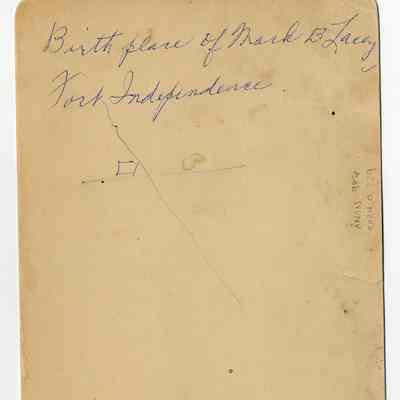 Birth place of Mark B Lacey
Fort Independence.